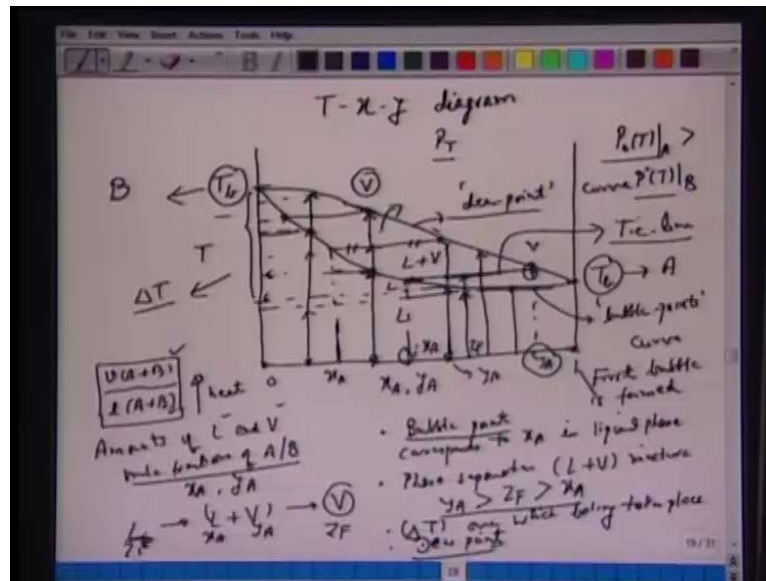 File Edit View Insert Actions Tools Help
T-x-y diagram
P_T
P_o(T)|_A >
curve P°(T)|_B
B
T_b
V
'dew point'
Tie line
T
L+V
V
ΔT
L
T_b → A
'bubble points'
curve
First bubble
is formed
x_A
y_A
Z_F
y_A
0
x_A
x_A, y_A
1
V(A+B)
l(A+B)
heat
Amounts of L and V
mole fraction of A/B
x_A, y_A
→ (L + V) → V
x_A y_A Z_F
• Bubble point
corresponds to x_A in liquid phase
• Phase separation (L+V) mixture
y_A > Z_F > x_A
• (ΔT) over which boiling taken place
• Dew point
19/21